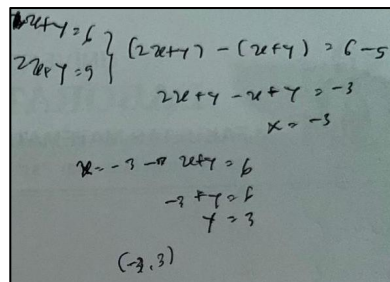 x+y=6
2x+y=9 } (2x+y) - (x+y) = 6-9
2x+y - x+y = -3
x = -3
x = -3 → x+y = 6
-3 + y = 6
y = 3
(-3, 3)